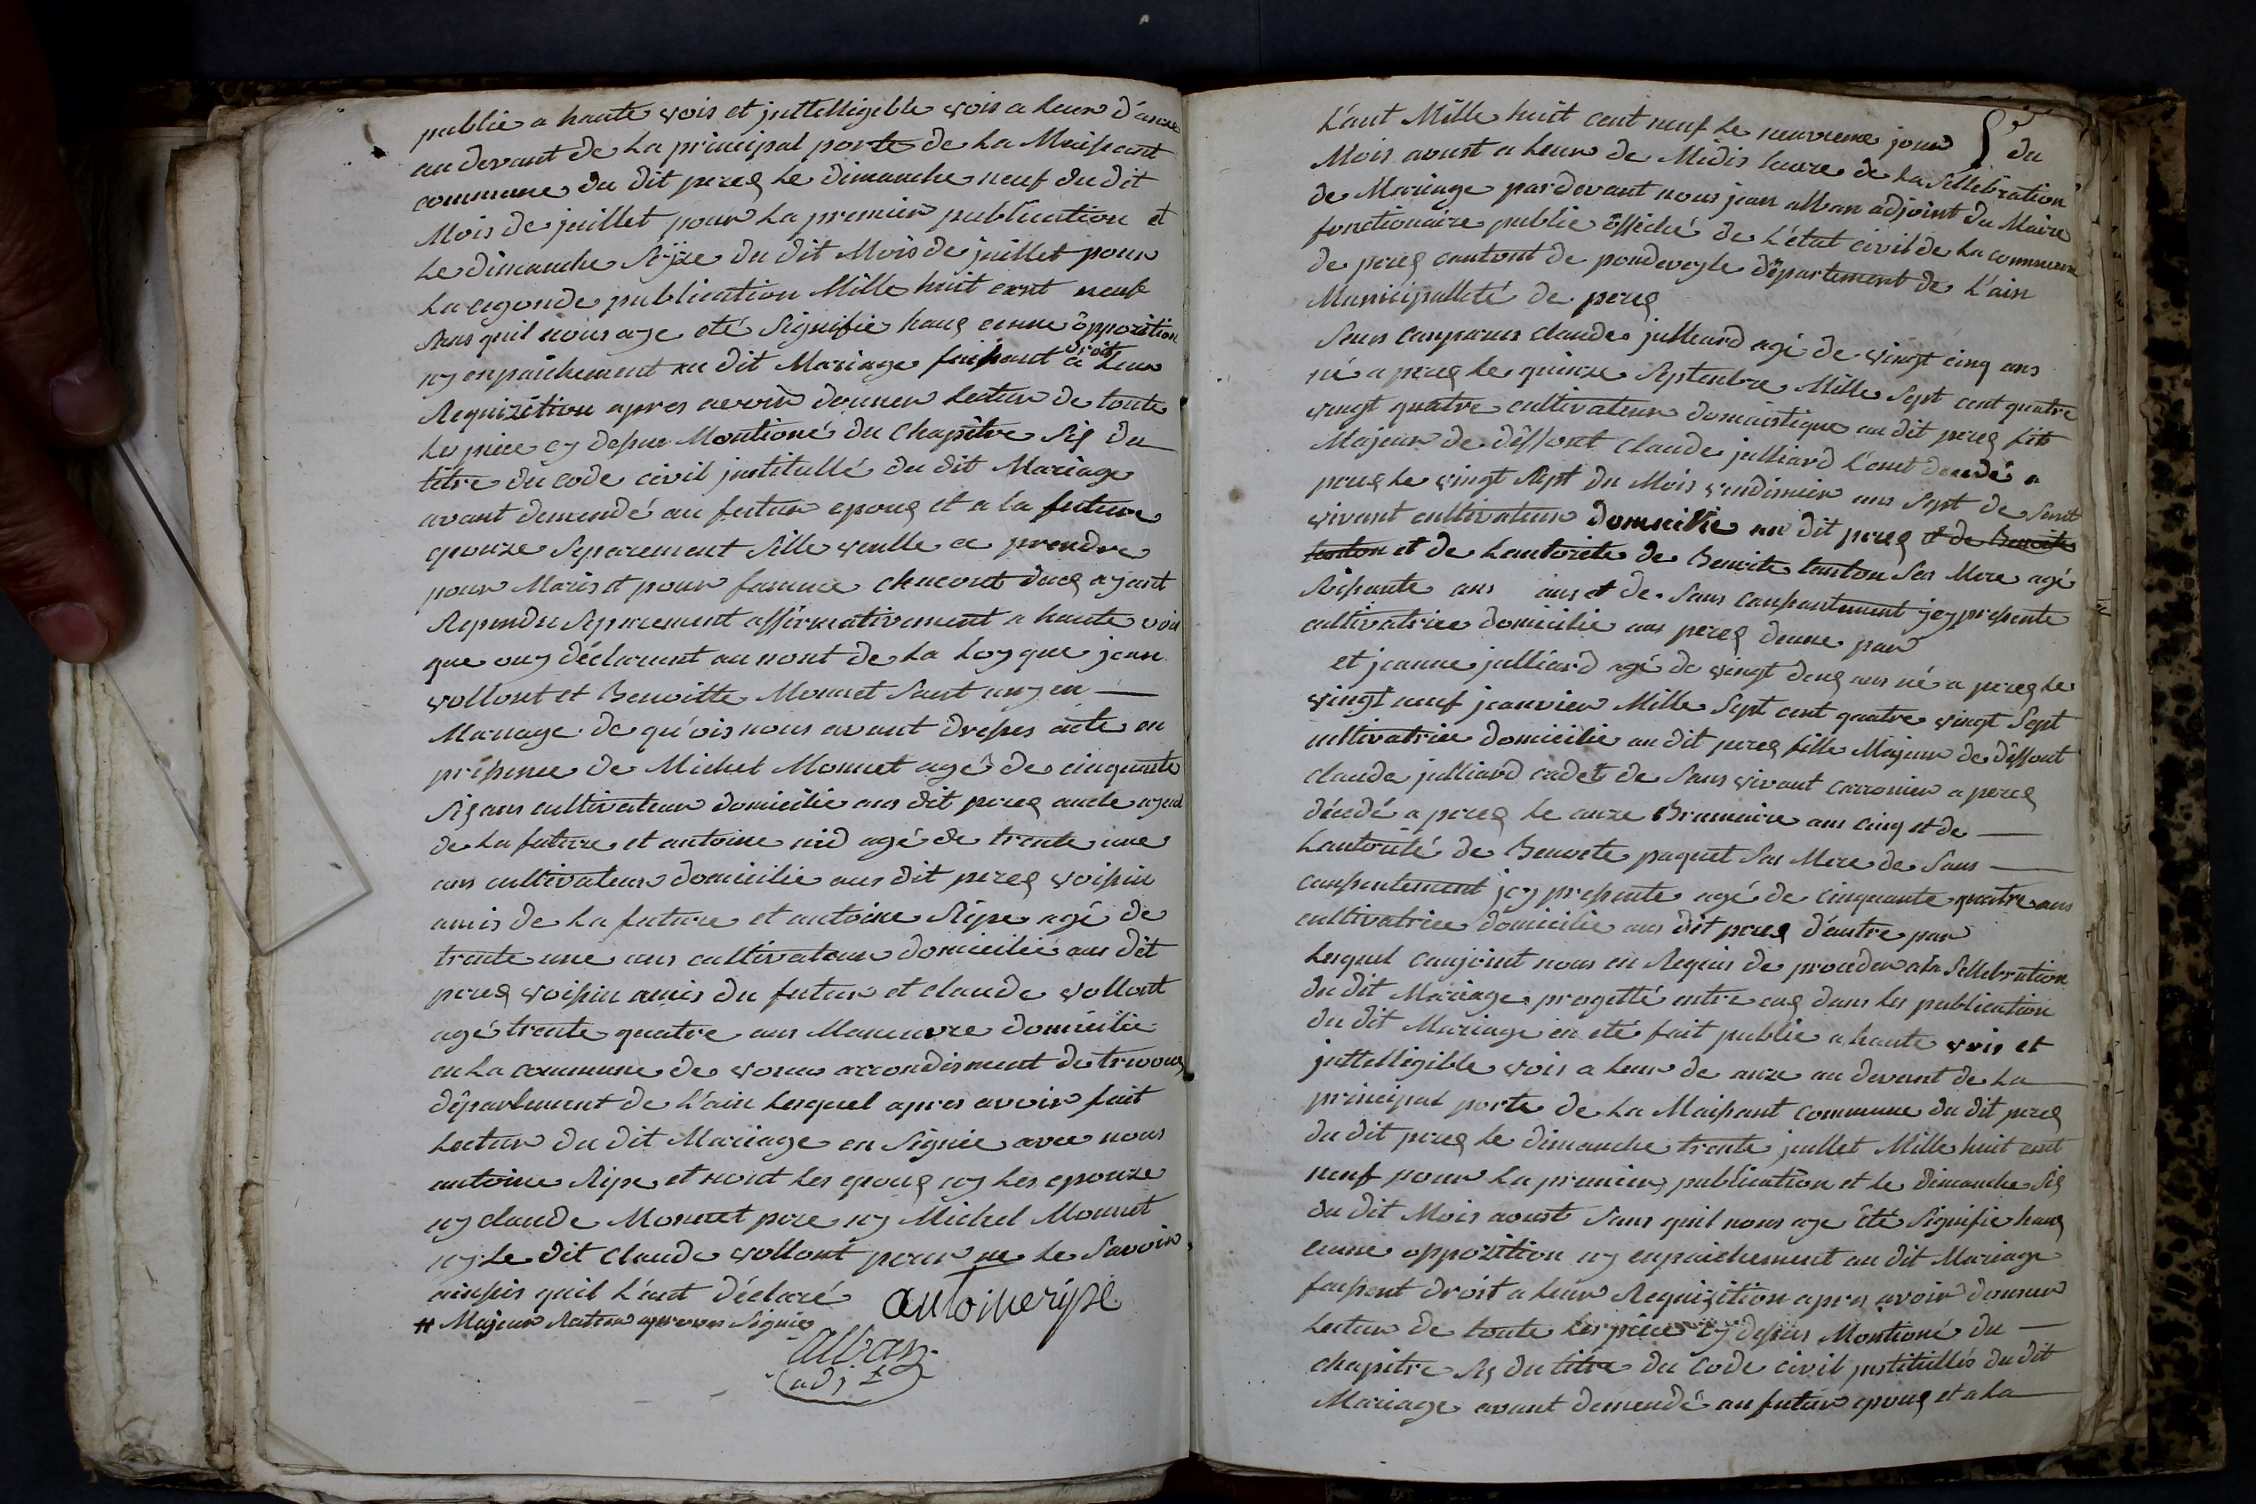 publie a haute vois et juttelligible vois a leur d'anze
au devant de La principal porte de La Maisont
commune du dit perex Le dimanche neuf du dit
Mois de juillet pour La premier publication et
Le dimanche Sёjze du dit Mois de juillet pour
La cegonde publication Mille huit cent neuf
Sans quil nous aye eté Signifie haux cenne oppozition
ny enpaichement au dit Mariage faissant droit a Leur
Requizition apres avoir donner Lectur de toute
Les piece cy desus Montioné du Chapitre Six du
titre du code civil jnstitullé du dit Mariage
avant demendé au futur epoux et a la future
epouze Separement Sille veulle ce prendre
pour Maris et pour famme chacont deux ayant
Repondu Separement affirmativement a haute vois
que ouy déclarant au nont de La Loy que jean
vollont et Benoitte Monnet Sant uny en
Mariage de quóis nous avant dresses acte en
pressence de Michel Monnet agé de cinquante
Six ans cultivateur domicilie aus dit perex oncle ayeul
de La future et antoine nid agé de trente une
ans cultivateur domicilie aus dit perex voissin
amis de La future et antoine Ripe agé de
trente une ans cultivateur domicilié aus dit
perex voissin amis du futur et claude vollont
agé trente quatre ans Maneuvre domicilie
en La commune de arrondisment de trevoux
département de L'ain Lesquel apres avoir fait
Lectur du dit Mariage en Signie avec nous
antoine Ripe et nont Les epoux ny Les epouze
ny claude Monnet pere ny Michel Monnet
ny Le dit Claude vollont pour ne Le Savoir
ainssis quil L'ant déclaré antoineripe
# Majeur Signie
alban
adjt
L'ant Mille huit cent neuf Le neuvieme jour du
Mois aoust a Leur de Midis Laure de La Sellebration
de Mariage pardevant nous jean alban adjoint du Maire
fonctionaire public öffiçié de L'état civil de La commune
de perex cantont de pondeveyle département de L'ain
Municipalleté de perex
Sous Conparus claude julleard agé de vingt cinq ans
né a perex Le quinze Septenbre Mille Sept cent quatre
vingt quatre cultivateur domaistique au dit perex fits
Majeur de déffont Claude julliard L'ené decedé a
perex Le vingt Sept du Mois vendimier ans Sept de Sont
vivant cultivateur domicilie au dit perex et de Benoite
tonton et de Lautorite de Benoite tonton Sas Mere agé
Soissante ans ans et de Sans Conssantement jcy pressente
cultivatrice domicilie aus perex deune par
et jeanne julliard agé de vingt deux ans né a perex Le
vingt neuf jeanvier Mille Sept cent quatre vingt Sept
cultivatrice domicilie au dit perex fille Majeur de déffont
claude julliard cadet de Sans vivant Carronier a perex
décédé a perex Le anze Brumaire ans cinq et de
Lautorité de Benoete paquet Sas Mere de Sans
conssentement jcy pressente agé de cinquante quatre ans
cultivatrice domicilie aus dit perex d'autre par
Lesquel Conjoint nous en Requis de proceder a La Sellebration
du dit Mariage progetté entre eux dans Les publication
du dit Mariage en eté fait publie a haute vois et
juttelligible vois a Leur de anze au devant de La
principal porte de La Maissont Commune du dit perex
du dit perex Le dimanche trente juillet Mille huit cent
neuf pour La premier publication et Le dimanche Six
du dit Mois aoust Sans quil nous aye été Signifie haux
cenne oppozition ny enpaichement au dit Mariage
faissent droit a Leur Requizition apres avoir donner
Lectur de toute Les piece cy desus Montioné du
chapitre Six du titre du Code civil jnstitullés du dit
Mariage avant demendé au futur epoux et a La